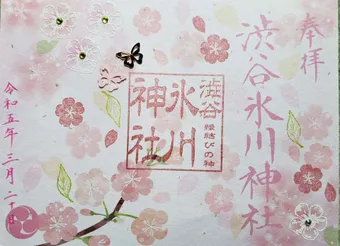 奉拝
渋谷氷川神社
渋谷
氷川
神社
縁結びの神
令和五年三月二十日